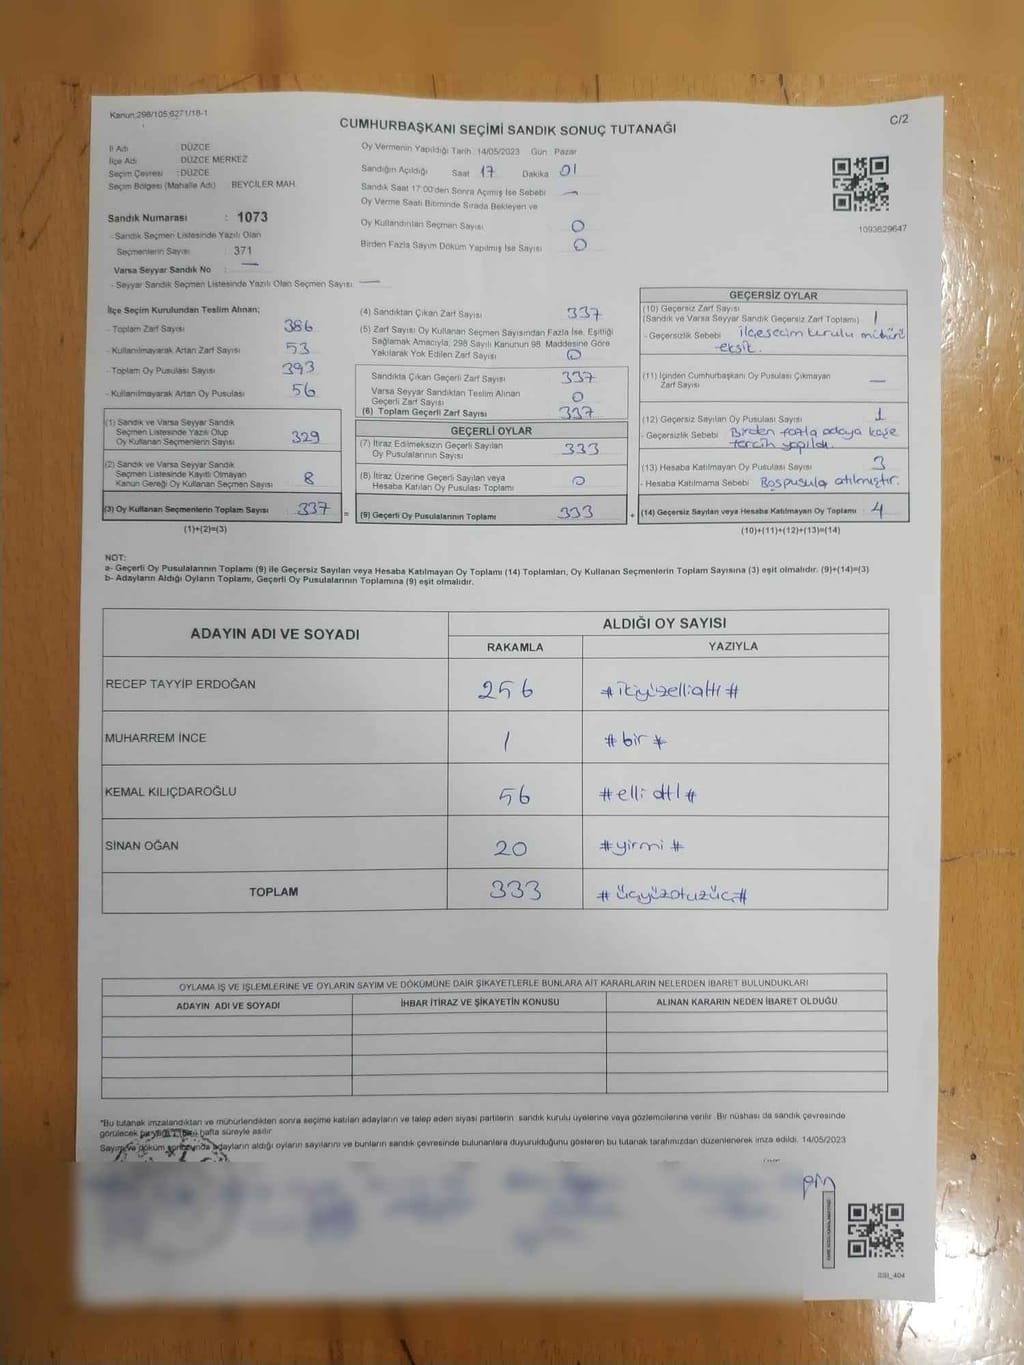 Kanun:298/105;6271/18-1
C/2
CUMHURBAŞKANI SEÇİMİ SANDIK SONUÇ TUTANAĞI
İl Adı DÜZCE
İlçe Adı DÜZCE MERKEZ
Seçim Çevresi : DÜZCE
Seçim Bölgesi (Mahalle Adı) BEYCİLER MAH.
Sandık Numarası : 1073
- Sandık Seçmen Listesinde Yazılı Olan
Seçmenlerin Sayısı : 371
Varsa Seyyar Sandık No : —
- Seyyar Sandık Seçmen Listesinde Yazılı Olan Seçmen Sayısı: —
Oy Vermenin Yapıldığı Tarih: 14/05/2023 Gün: Pazar
Sandığın Açıldığı Saat 17 Dakika 01
Sandık Saat 17:00'den Sonra Açılmış İse Sebebi —
Oy Verme Saati Bitiminde Sırada Bekleyen ve
Oy Kullandırılan Seçmen Sayısı 0
Birden Fazla Sayım Döküm Yapılmış İse Sayısı 0
1093629647
İlçe Seçim Kurulundan Teslim Alınan;
- Toplam Zarf Sayısı 386
- Kullanılmayarak Artan Zarf Sayısı 53
- Toplam Oy Pusulası Sayısı 393
- Kullanılmayarak Artan Oy Pusulası 56
(1) Sandık ve Varsa Seyyar Sandık
Seçmen Listesinde Yazılı Olup
Oy Kullanan Seçmenlerin Sayısı 329
(2) Sandık ve Varsa Seyyar Sandık
Seçmen Listesinde Kayıtlı Olmayan
Kanun Gereği Oy Kullanan Seçmen Sayısı 8
(3) Oy Kullanan Seçmenlerin Toplam Sayısı 337 =
(1)+(2)=(3)
(4) Sandıktan Çıkan Zarf Sayısı 337
(5) Zarf Sayısı Oy Kullanan Seçmen Sayısından Fazla İse, Eşitliği
Sağlamak Amacıyla, 298 Sayılı Kanunun 98. Maddesine Göre
Yakılarak Yok Edilen Zarf Sayısı 0
Sandıkta Çıkan Geçerli Zarf Sayısı 337
Varsa Seyyar Sandıktan Teslim Alınan
Geçerli Zarf Sayısı 0
(6) Toplam Geçerli Zarf Sayısı 337
GEÇERLİ OYLAR
(7) İtiraz Edilmeksizin Geçerli Sayılan
Oy Pusulalarının Sayısı 333
(8) İtiraz Üzerine Geçerli Sayılan veya
Hesaba Katılan Oy Pusulası Toplamı 0
(9) Geçerli Oy Pusulalarının Toplamı 333 +
GEÇERSİZ OYLAR
(10) Geçersiz Zarf Sayısı
(Sandık ve Varsa Seyyar Sandık Geçersiz Zarf Toplamı) 1
- Geçersizlik Sebebi ilçesecim kurulu mührü
eksik.
(11) İçinden Cumhurbaşkanı Oy Pusulası Çıkmayan
Zarf Sayısı —
(12) Geçersiz Sayılan Oy Pusulası Sayısı 1
- Geçersizlik Sebebi Birden fazla adaya kaşe
tercih yapıldı.
(13) Hesaba Katılmayan Oy Pusulası Sayısı 3
- Hesaba Katılmama Sebebi Boş pusula atılmıştır.
(14) Geçersiz Sayılan veya Hesaba Katılmayan Oy Toplamı 4
(10)+(11)+(12)+(13)=(14)
NOT:
a- Geçerli Oy Pusulalarının Toplamı (9) ile Geçersiz Sayılan veya Hesaba Katılmayan Oy Toplamı (14) Toplamları, Oy Kullanan Seçmenlerin Toplam Sayısına (3) eşit olmalıdır. (9)+(14)=(3)
b- Adayların Aldığı Oyların Toplamı, Geçerli Oy Pusulalarının Toplamına (9) eşit olmalıdır.
ADAYIN ADI VE SOYADI
ALDIĞI OY SAYISI
RAKAMLA YAZIYLA
RECEP TAYYİP ERDOĞAN 256 #ikiyüzellialtı#
MUHARREM İNCE 1 #bir#
KEMAL KILIÇDAROĞLU 56 #elli altı#
SİNAN OĞAN 20 #yirmi#
TOPLAM 333 #üçyüzotuzüç#
OYLAMA İŞ VE İŞLEMLERİNE VE OYLARIN SAYIM VE DÖKÜMÜNE DAİR ŞİKAYETLERLE BUNLARA AİT KARARLARIN NELERDEN İBARET BULUNDUKLARI
ADAYIN ADI VE SOYADI İHBAR İTİRAZ VE ŞİKAYETİN KONUSU ALINAN KARARIN NEDEN İBARET OLDUĞU
*Bu tutanak imzalandıktan ve mühürlendikten sonra seçime katılan adayların ve talep eden siyasi partilerin sandık kurulu üyelerine veya gözlemcilerine verilir. Bir nüshası da sandık çevresinde
görülecek bir hafta süreyle asılır.
Sayım ve döküm sonucunda adayların aldığı oyların sayılarını ve bunların sandık çevresinde bulunanlara duyurulduğunu gösteren bu tutanak tarafımızdan düzenlenerek imza edildi. 14/05/2023
SSI_404